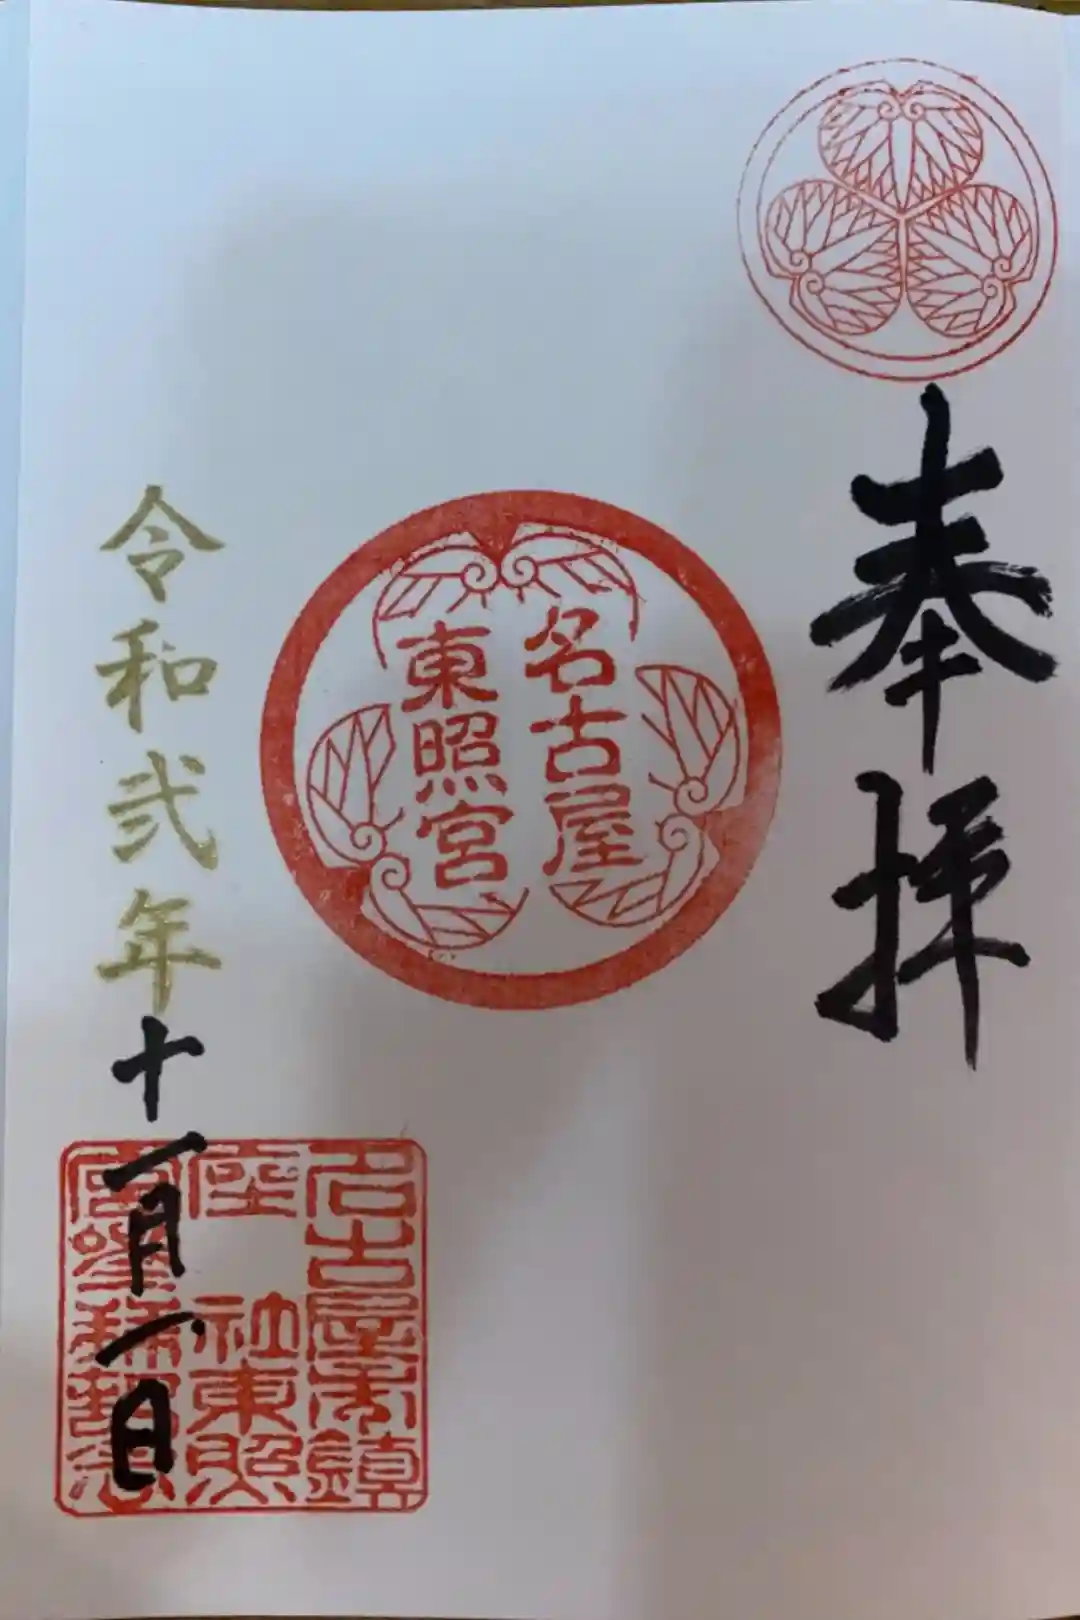 奉拝
名古屋
東照宮
令和弐年十一月一日
名古屋永鎮
座 社東照